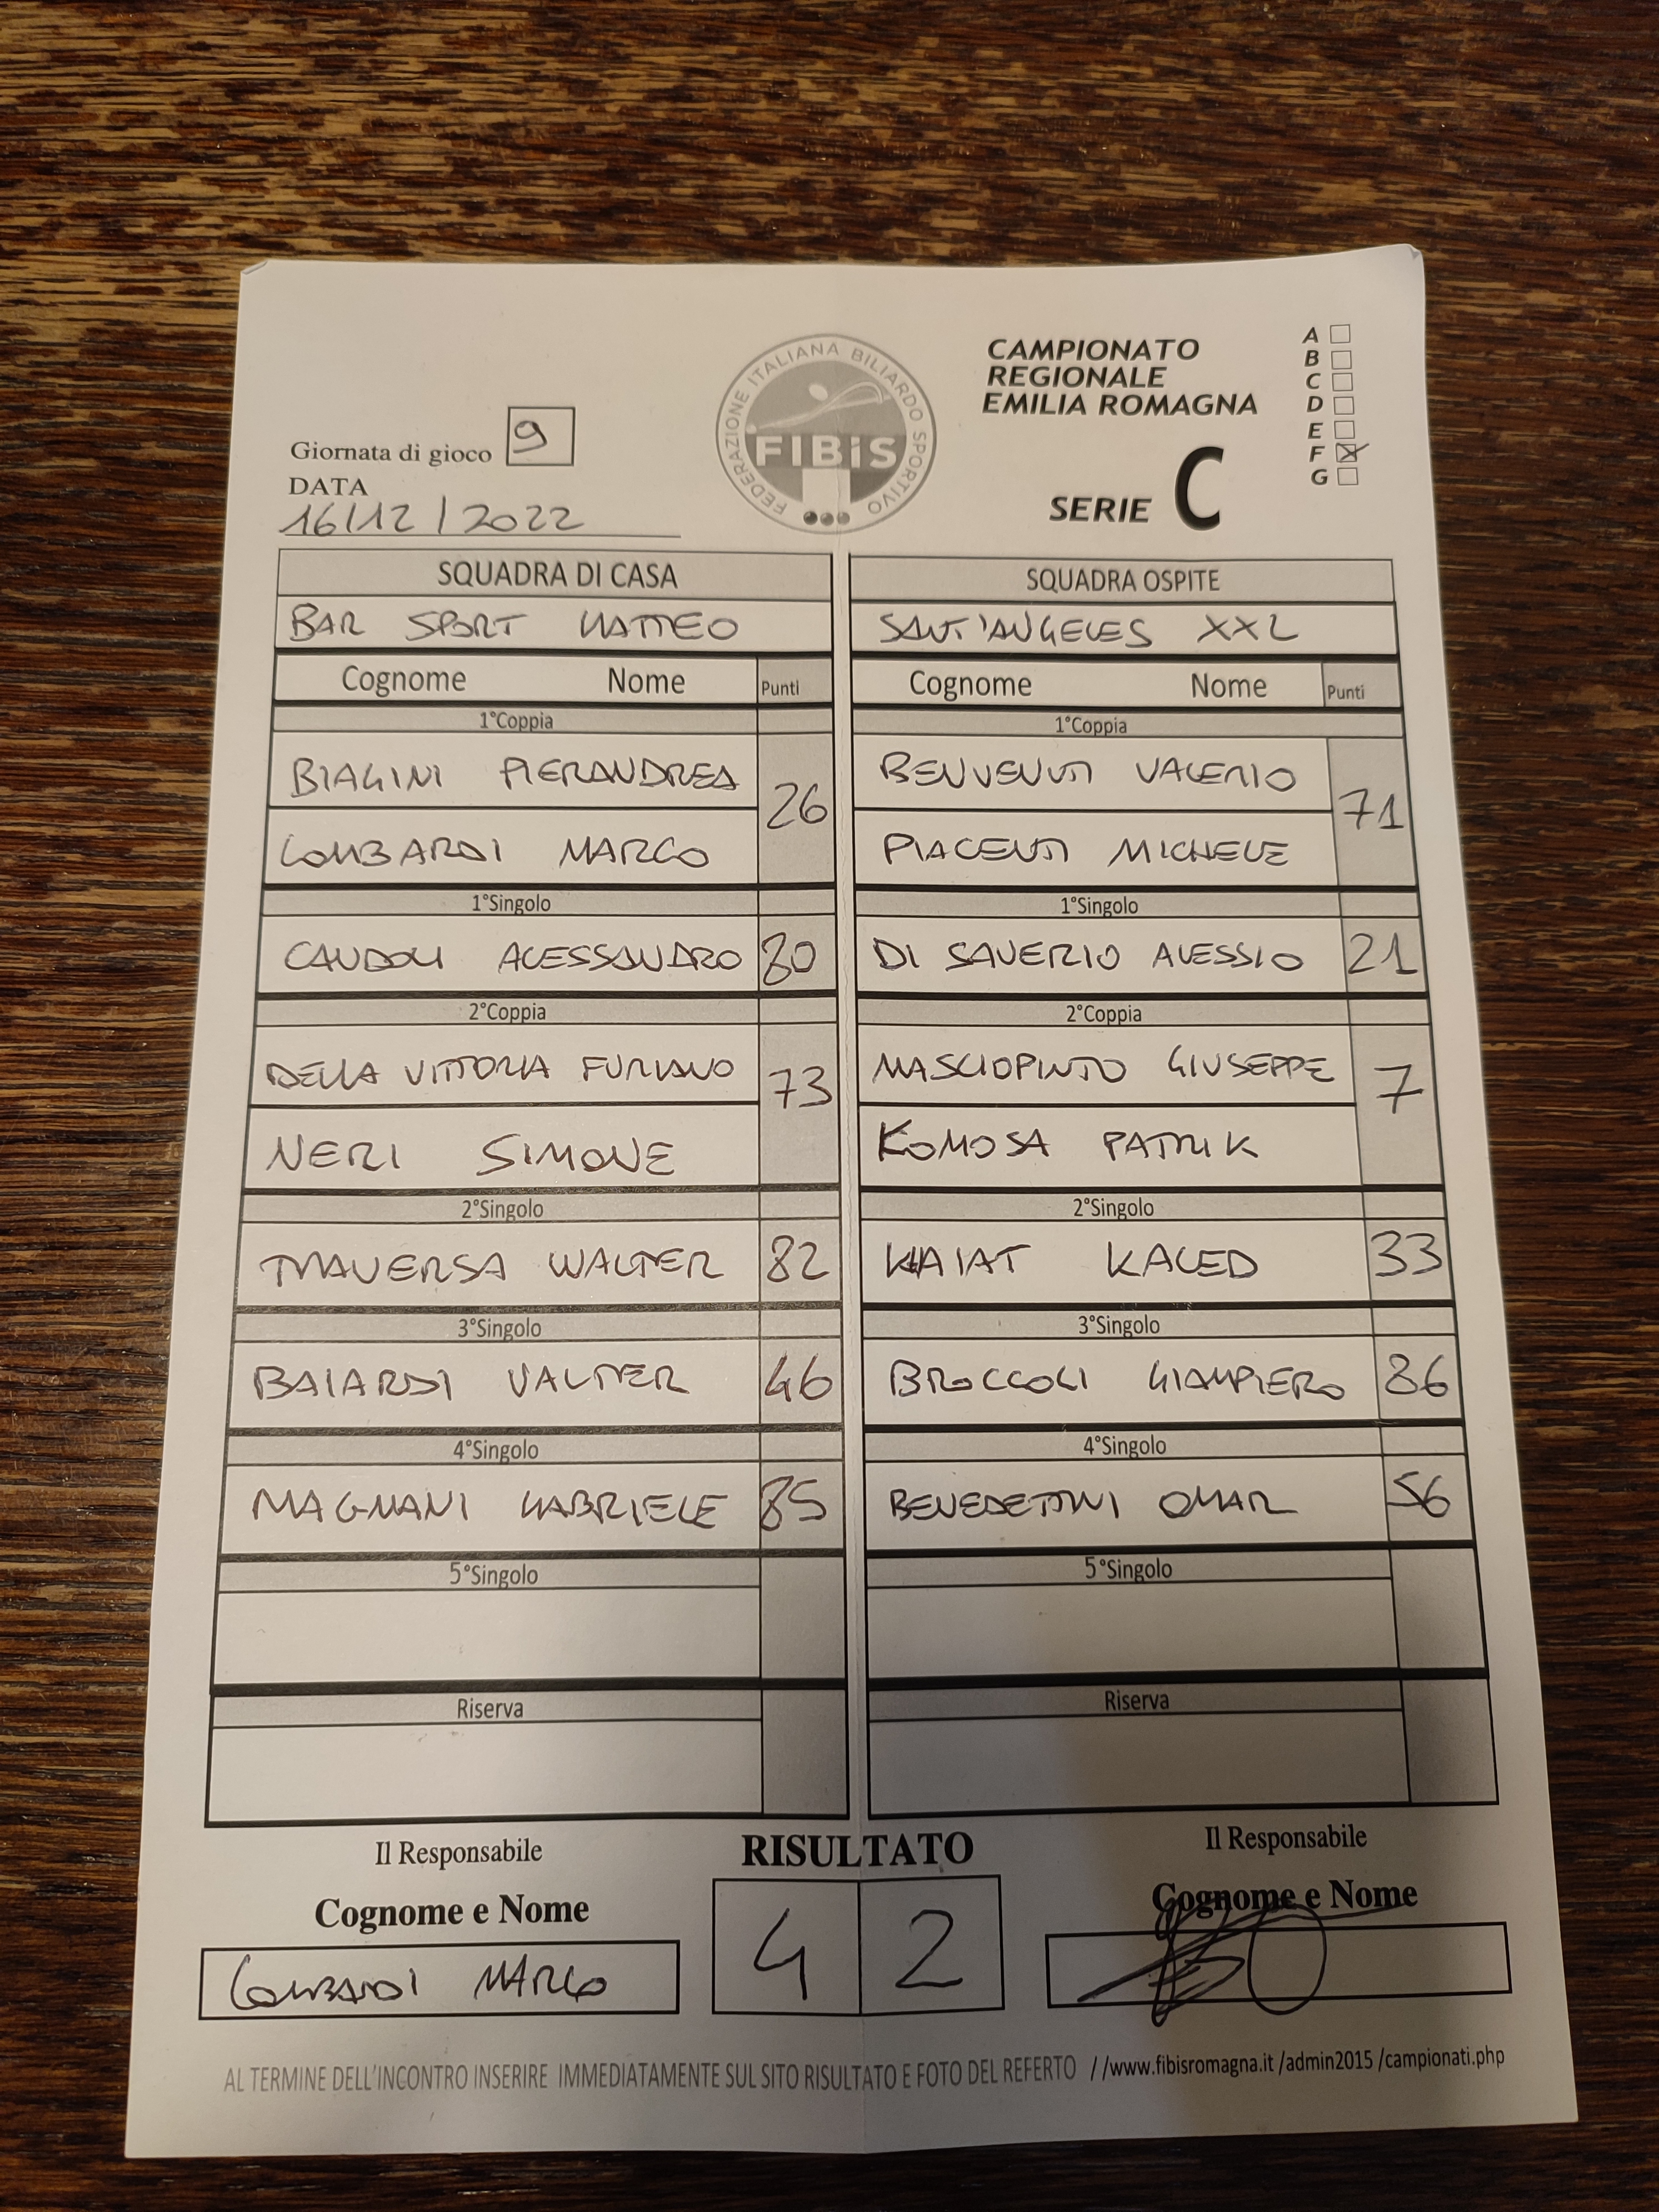 CAMPIONATO
REGIONALE
EMILIA ROMAGNA
SERIE C
A
B
C
D
E
F
G
FEDERAZIONE ITALIANA BILIARDO SPORTIVO
FIBiS
Giornata di gioco 9
DATA
16/12/2022
SQUADRA DI CASA
BAR SPORT MATTEO
Cognome Nome Punti
1°Coppia
BIAGINI PIERANDREA
26
LOMBARDI MARCO
1°Singolo
CANDOLI ALESSANDRO 80
2°Coppia
DELLA VITTORIA FURIANO
73
NERI SIMONE
2°Singolo
TRAVERSA WALTER 82
3°Singolo
BAIARDI VALTER 46
4°Singolo
MAGNANI GABRIELE 85
5°Singolo
Riserva
SQUADRA OSPITE
SANT'ANGELES XXL
Cognome Nome Punti
1°Coppia
BENVENUTI VALERIO
71
PIACENTI MICHELE
1°Singolo
DI SAVERIO ALESSIO 21
2°Coppia
MASCIOPINTO GIUSEPPE
7
KOMOSA PATRIK
2°Singolo
KAIAT KALED 33
3°Singolo
BROCCOLI GIAMPIERO 86
4°Singolo
BENEDETTINI OMAR 56
5°Singolo
Riserva
Il Responsabile
Cognome e Nome
LOMBARDI MARCO
RISULTATO
4 2
Il Responsabile
Cognome e Nome
AL TERMINE DELL'INCONTRO INSERIRE IMMEDIATAMENTE SUL SITO RISULTATO E FOTO DEL REFERTO //www.fibisromagna.it/admin2015/campionati.php